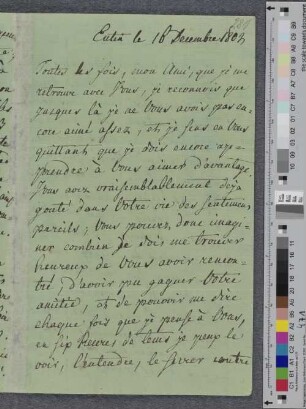 Eutin le 18 Decembre 1802
Toutes les fois, mon Ami, que je me
retrouve avec Vous, je reconnois que
jusques là je ne Vous avois pas en-
core aimé assez, et je sens en Vous
quittant que je dois encore ap-
prendre à Vous aimer d'avantage.
Vous avez vraisemblablement déja
gouté dans Votre vie des sentimens
pareils; Vous pouvez donc imagi-
ner combien je dois me trouver
heureux de Vous avoir rencon-
tré, d'avoir pu gagner Votre
amitié, et de pouvoir me dire
chaque fois que je pense à Vous,
en six heures de tems je peux le
voir, l'entendre, le serrer contre